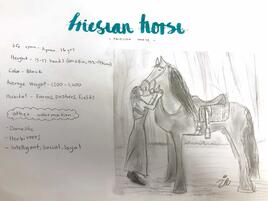 friesian horse
Life span - Approx. 16 yrs
Height -
Color - Black
Average Weight -
Habitat - Farms, pastures, fields
other information
- Domestic
- Herbivores
- Intelligent, social, loyal